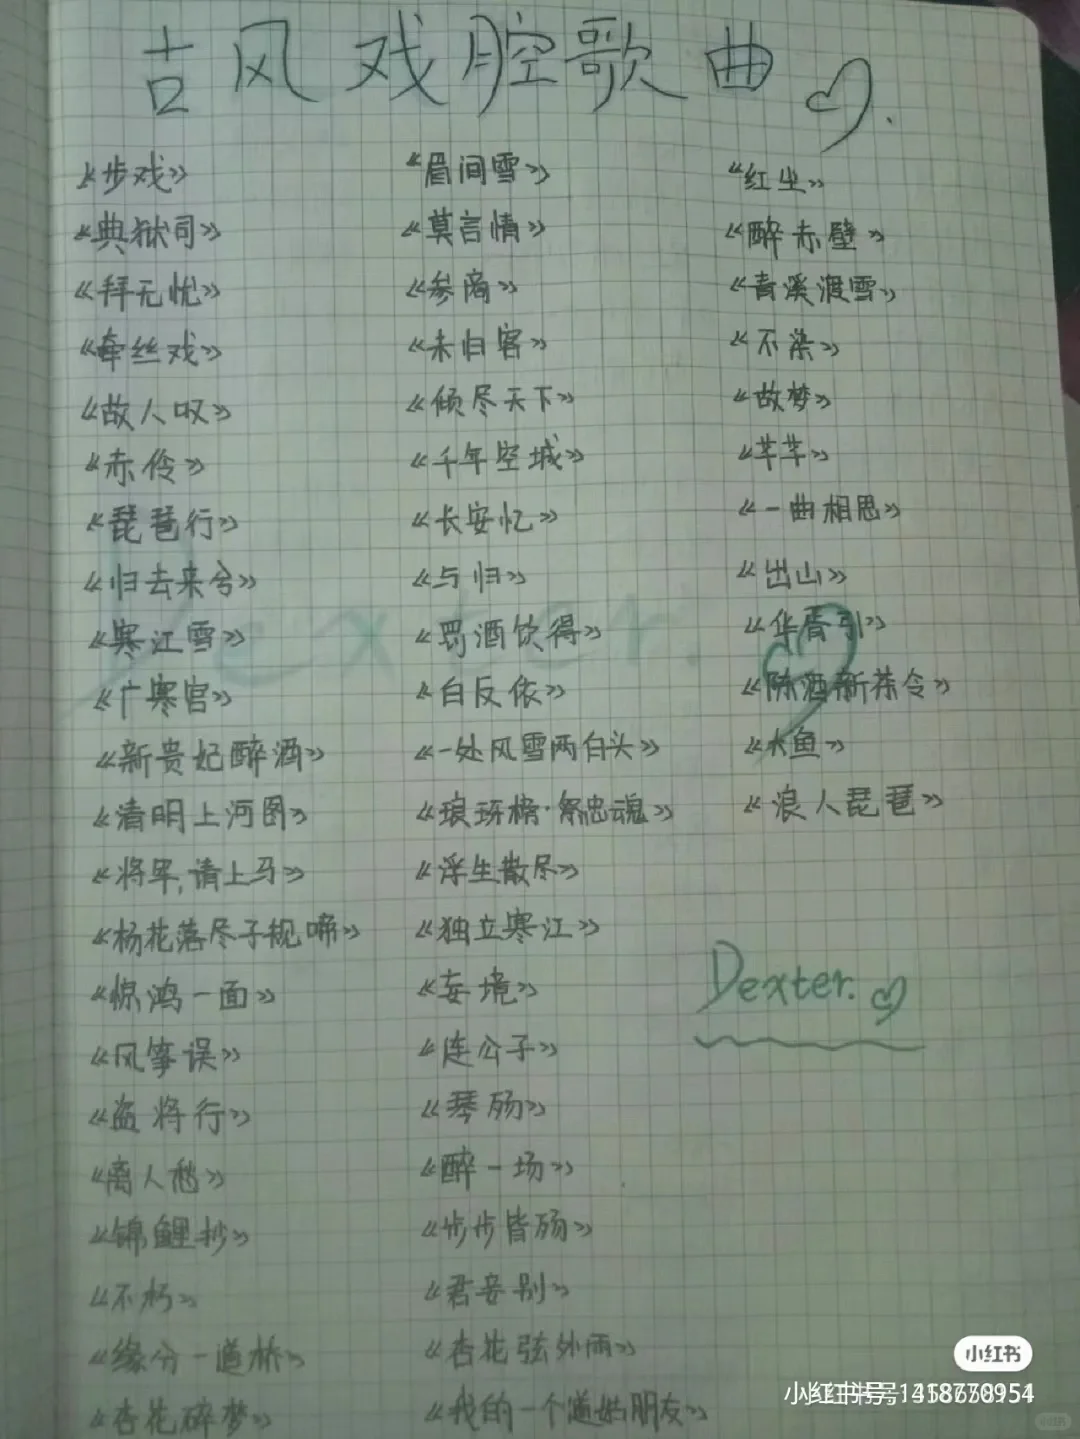 古风戏腔歌曲
《步戏》
《典狱司》
《拜无忧》
《牵丝戏》
《故人叹》
《赤伶》
《琵琶行》
《归去来兮》
《寒江雪》
《广寒宫》
《新贵妃醉酒》
《清明上河图》
《将军,请上马》
《杨花落尽子规啼》
《惊鸿一面》
《风筝误》
《盗将行》
《离人愁》
《锦鲤抄》
《不朽》
《缘分一道桥》
《杏花碎梦》
《眉间雪》
《莫言情》
《参商》
《未归客》
《倾尽天下》
《千年空城》
《长安忆》
《与归》
《罚酒饮得》
《白反依》
《一处风雪两白头》
《琅琊榜·祭忠魂》
《浮生散尽》
《独立寒江》
《妄境》
《连公子》
《琴殇》
《醉一场》
《步步皆殇》
《君妄别》
《杏花弦外雨》
《我的一个道姑朋友》
《红尘》
《醉赤壁》
《青溪渡雪》
《不染》
《故梦》
《芊芊》
《一曲相思》
《出山》
《华胥引》
《陈酒新茶令》
《大鱼》
《浪人琵琶》
Dexter.
Dexter.
小红书
小红书号: